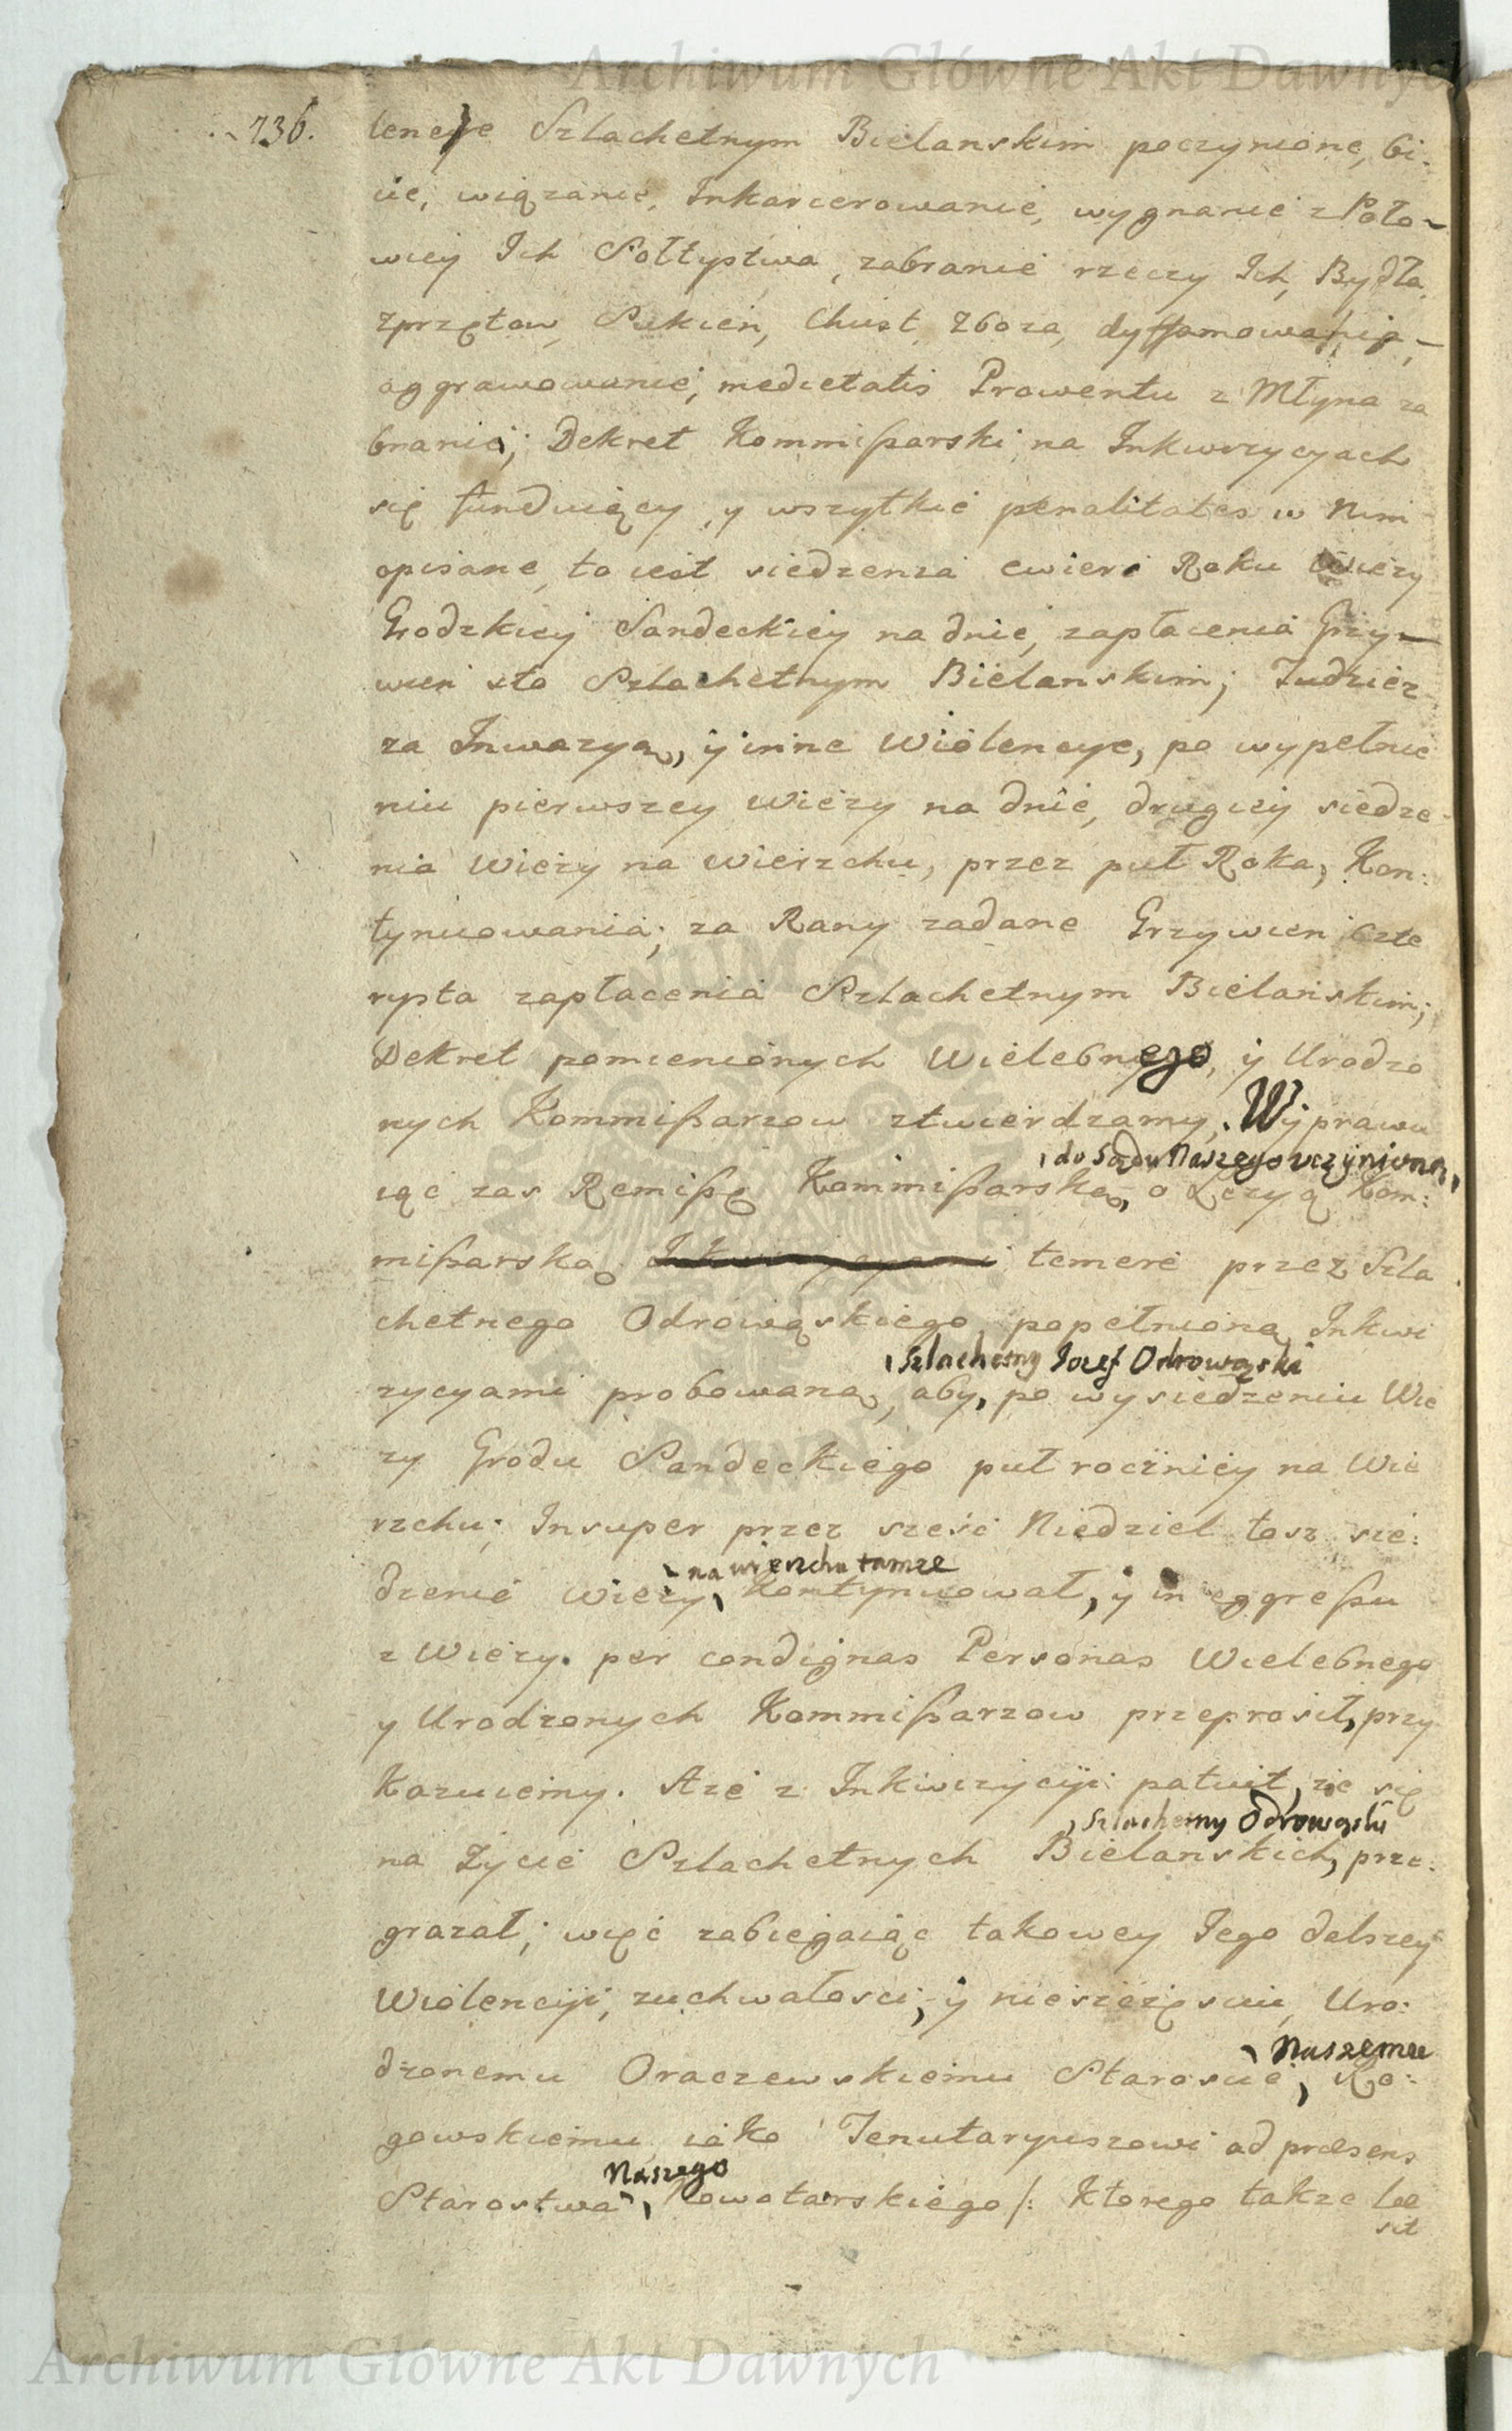 Archiwum Główne Akt Dawnych
736.
lencye Szlachetnym Bielanskim poczynione, bi:
cie, wiązanie, Inkarcerowanie, wygnanie z Poło-
wicy Ich Sołtystwa, zabranie rzeczy Ich, Bydła,
zprzętow, Sukien, Chust, Zboza, dyffamowanie,-
aggrawowanie, medietatis Prowentu z Młyna za
branie; Dekret Kommißarski na Inkwizycyach
się funduiący, y wszytkie penalitates w nim
opisane, to iest siedzenia cwierc Roku Wiezy
Grodzkiey Sandeckiey na dnie, zapłacenia Grzy-
wien sto Szlachetnym Bielanskim; Tudziez
za Inwazyą, y inne Wiolencye, po wypełnie
niu pierwszey Wiezy na dnie, drugiey siedze-
nia Wiezy na Wierzchu, przez puł Roka, Kon:
tynuowania; za Rany zadane Grzywien czte
rysta zapłacenia Szlachetnym Bielanskim;
Dekret pomienionych Wielebnego, y Urodzo
nych Kommißarzow ztwierdzamy. Wyprawu
, do Sądu Naszego uczynioną,
iąc zas Remißę Kommißarską, o Lezyą Kom:
mißarską temere przez Szla
chetnego Odrowąskiego popełnioną Inkwi
, Szlachetny Jozef Odrowąski
zycyami probowaną, aby, po wysiedzeniu Wie
zy Grodu Sandeckiego puł roczniey na Wie
rzchu; Insuper przez szesc Niedziel tosz sie:
na wierzchu tamze
dzenie Wiezy, kontynuował, y in eggreßu
z Wiezy. per condignas Personas Wielebnego
y Urodzonych Kommißarzow przeprosił, przy
kazuiemy. Aze z Inkwizycyi patuit, ze się
, Szlachetny Odrowąski
na Zycie Szlachetnych Bielanskich, prze:
grazał; więc zabiegaiąc takowey Jego dalszey
Wiolencyi, zuchwałosci, y nieszczęsciu, Uro:
Naszemu
dzonemu Oraczewskiemu Staroscie, Ro:
gowskiemu iako Tenutaryuszowi ad præsens
Naszego
Starostwa, Nowotarskiego /: Ktorego takze lae
sit
Archiwum Główne Akt Dawnych